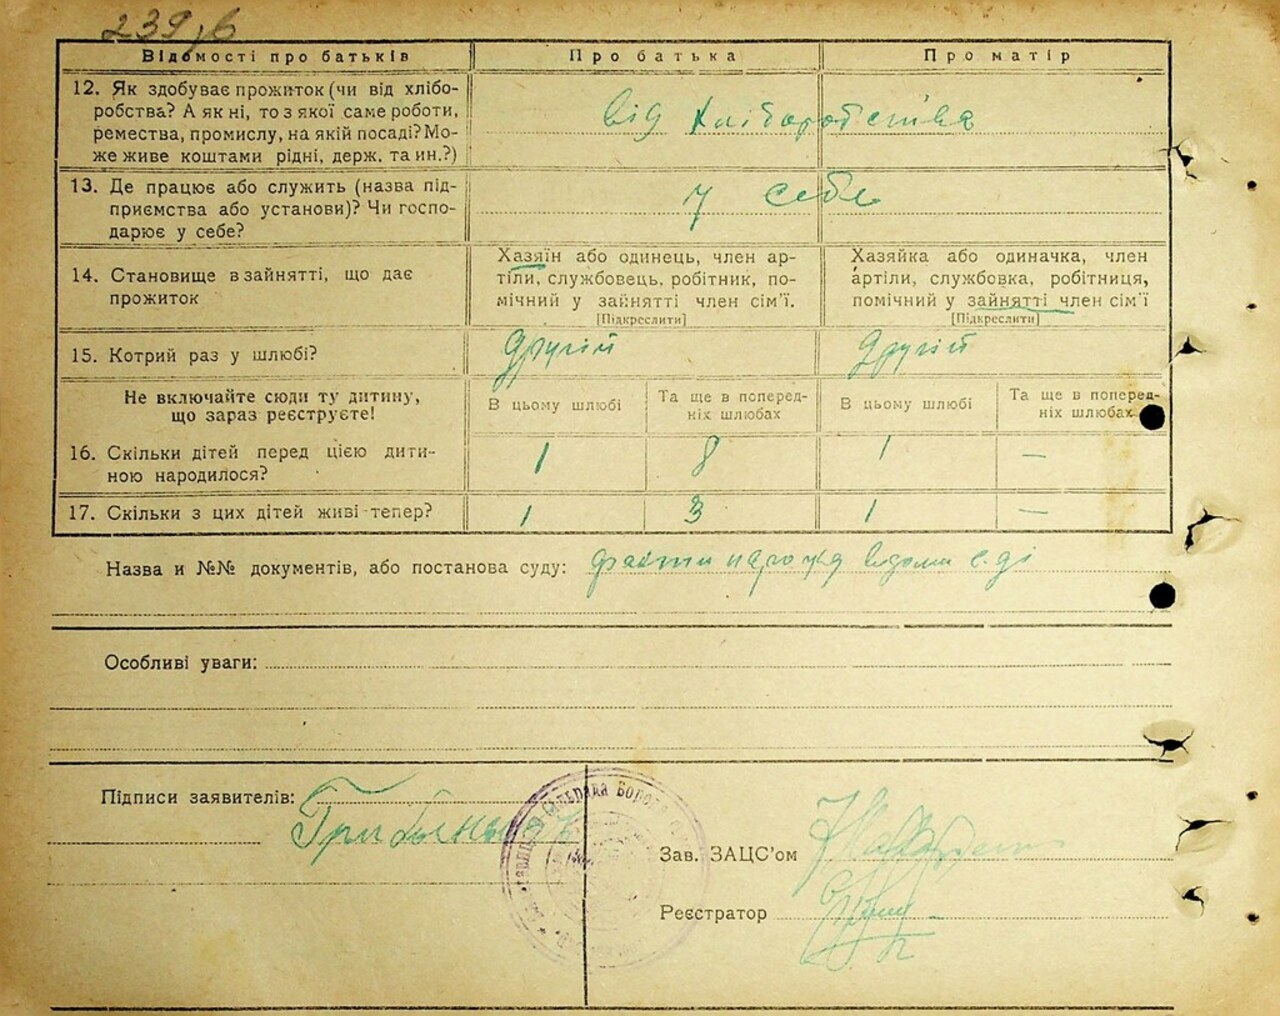 239,б
Відомості про батьків Про батька Про матір
12. Як здобуває прожиток (чи від хлібо-
робства? А як ні, то з якої саме роботи,
ремества, промислу, на якій посаді? Мо-
же живе коштами рідні, держ. та ин.?)
від хліборобства
13. Де працює або служить (назва під-
приємства або установи)? Чи госпо-
дарює у себе?
у себе
14. Становище в зайнятті, що дає
прожиток
Хазяїн або одинець, член ар-
тіли, службовець, робітник, по-
мічний у зайнятті член сім’ї.
[Підкреслити]
Хазяйка або одиначка, член
артіли, службовка, робітниця,
помічний у зайнятті член сім’ї
[Підкреслити]
15. Котрий раз у шлюбі? другій другій
Не включайте сюди ту дитину,
що зараз реєструєте!
В цьому шлюбі
Та ще в поперед-
ніх шлюбах
В цьому шлюбі
Та ще в поперед-
ніх шлюбах
16. Скільки дітей перед цією дити-
ною народилося?
1 8 1 —
17. Скільки з цих дітей живі тепер? 1 3 1 —
Назва и №№ документів, або постанова суду: факти
Особливі уваги:
Підписи заявителів:
Сільрада
Зав. ЗАЦС’ом
Реєстратор